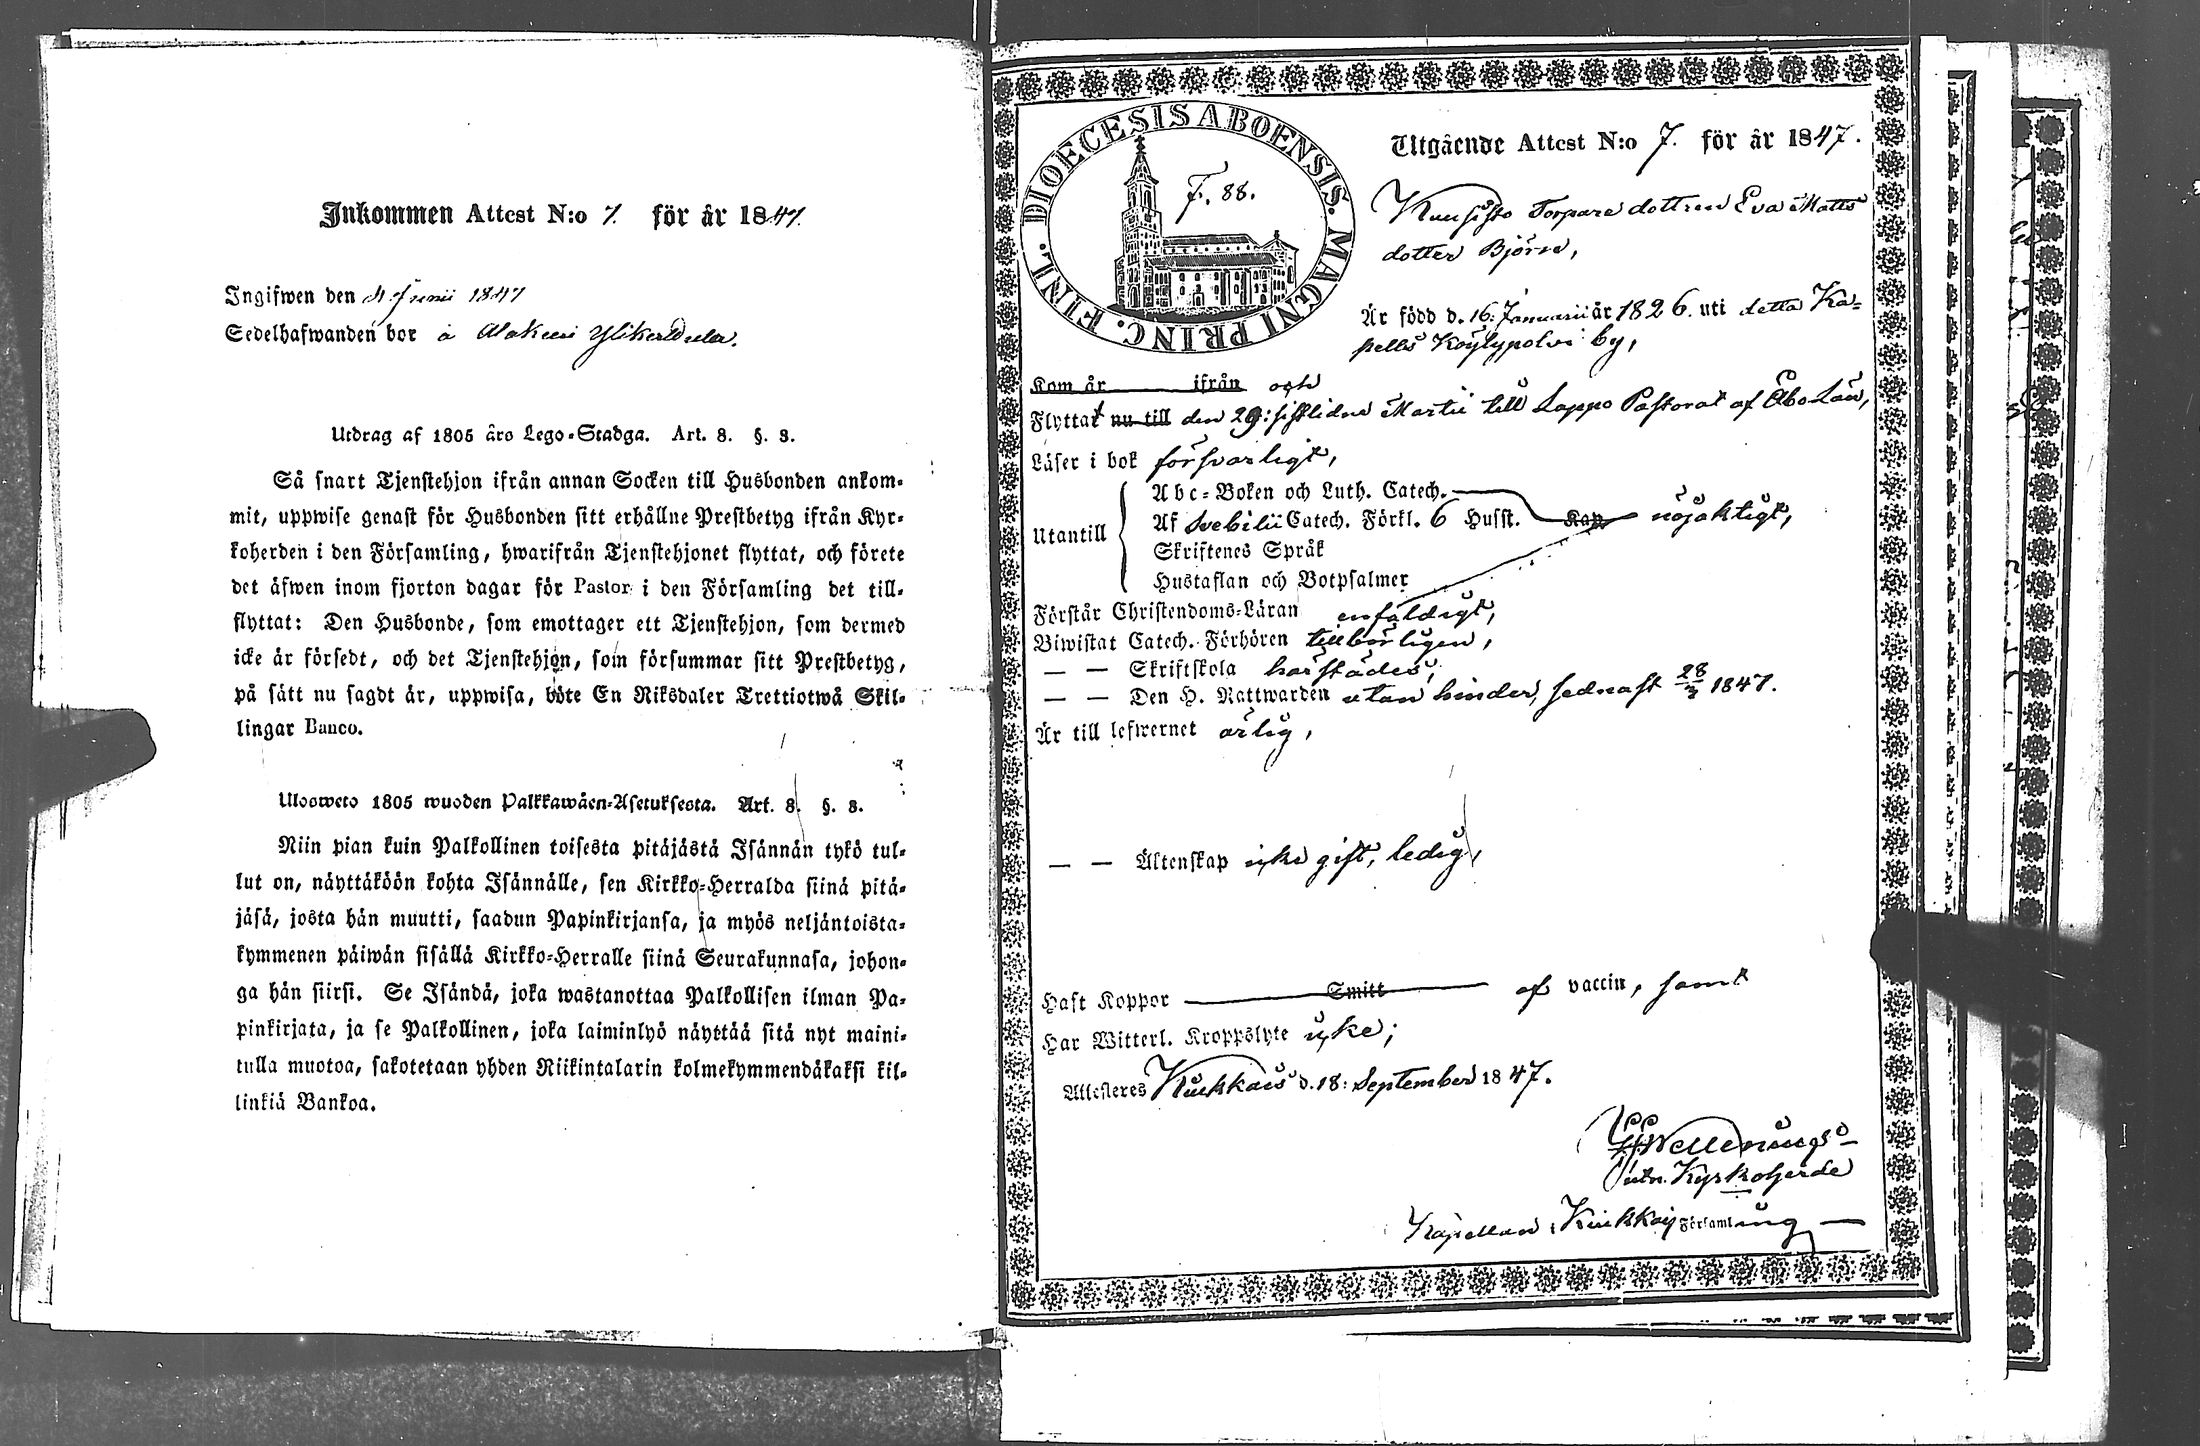 Inkommen Attest N:o 7. för år 1847.
Ingifwen den 4 Junii 1847
Sedelhafwanden bor å
Utdrag af 1805 års Lego-Stadga. Art. 8. §. 3.
Så snart Tjenstehjon ifrån annan Socken till Husbonden ankom-
mit, uppwise genast för Husbonden sitt erhållne Prestbetyg ifrån Kyr-
koherden i den Församling, hwarifrån Tjenstehjonet flyttat, och förete
det äfwen inom fjorton dagar för Pastor i den Församling det till-
flyttat: Den Husbonde, som emottager ett Tjenstehjon, som dermed
icke är försedt, och det Tjenstehjon, som försummar sitt Prestbetyg,
på sätt nu sagdt är, uppwisa, böte En Riksdaler Trettiotwå Skil-
lingar Banco.
Ulosweto 1805 wuoden Palkkawäen-Asetuksesta. Art. 8. §. 3.
Niin pian kuin Palkollinen toisesta pitäjästä Isännän tykö tul-
lut on, näyttäköön kohta Isännälle, sen Kirkko-Herralda siinä pitä-
jäsä, josta hän muutti, saadun Papinkirjansa, ja myös neljäntoista-
kymmenen päiwän sisällä Kirkko-Herralle siinä Seurakunnasa, johon-
ga hän siirsi. Se Isändä, joka wastanottaa Palkollisen ilman Pa-
pinkirjata, ja se Palkollinen, joka laiminlyö näyttää sitä nyt maini-
tulla muotoa, sakotetaan yhden Riikintalarin kolmekymmendäkaksi kil-
linkiä Bankoa.
DIOECESIS ABOENSIS. MAGNI PRINC. FINL.
F. 88.
Utgående Attest N:o 7. för år 1847.
Kuusisto Torpare dottren Eva Matts
dotter Björn,
Är född d. 16. Januarii år 1826. uti detta Ka-
pells Köylypolvi by,
Kom år ifrån och
Flyttat nu till den 29: sistlidne Martii till Lappo Pastorat af Åbo Län,
Läser i bok försvarligt,
Utantill
Abc-Boken och Luth. Catech.
Af Svebilii Catech. Förkl. 6 Husst. Kap. nöjaktigt,
Skriftenes Språk
Hustaflan och Botpsalmer
Förstår Christendoms-Läran enfaldigt,
Biwistat Catech. Förhören tillbörligen,
— — Skriftskola härstädes;
— — Den H. Nattwarden utan hinder, sednast 28/3 1847.
Är till lefwernet ärlig,
— — Äktenskap icke gift, ledig,
Haft Koppor Smitt af vaccin, samt
Har Witterl. Kroppslyte icke;
Attesteres Kiukkais d. 18: September 1847.
Kyrkoherde
Kapellan i Kiukkais Församling